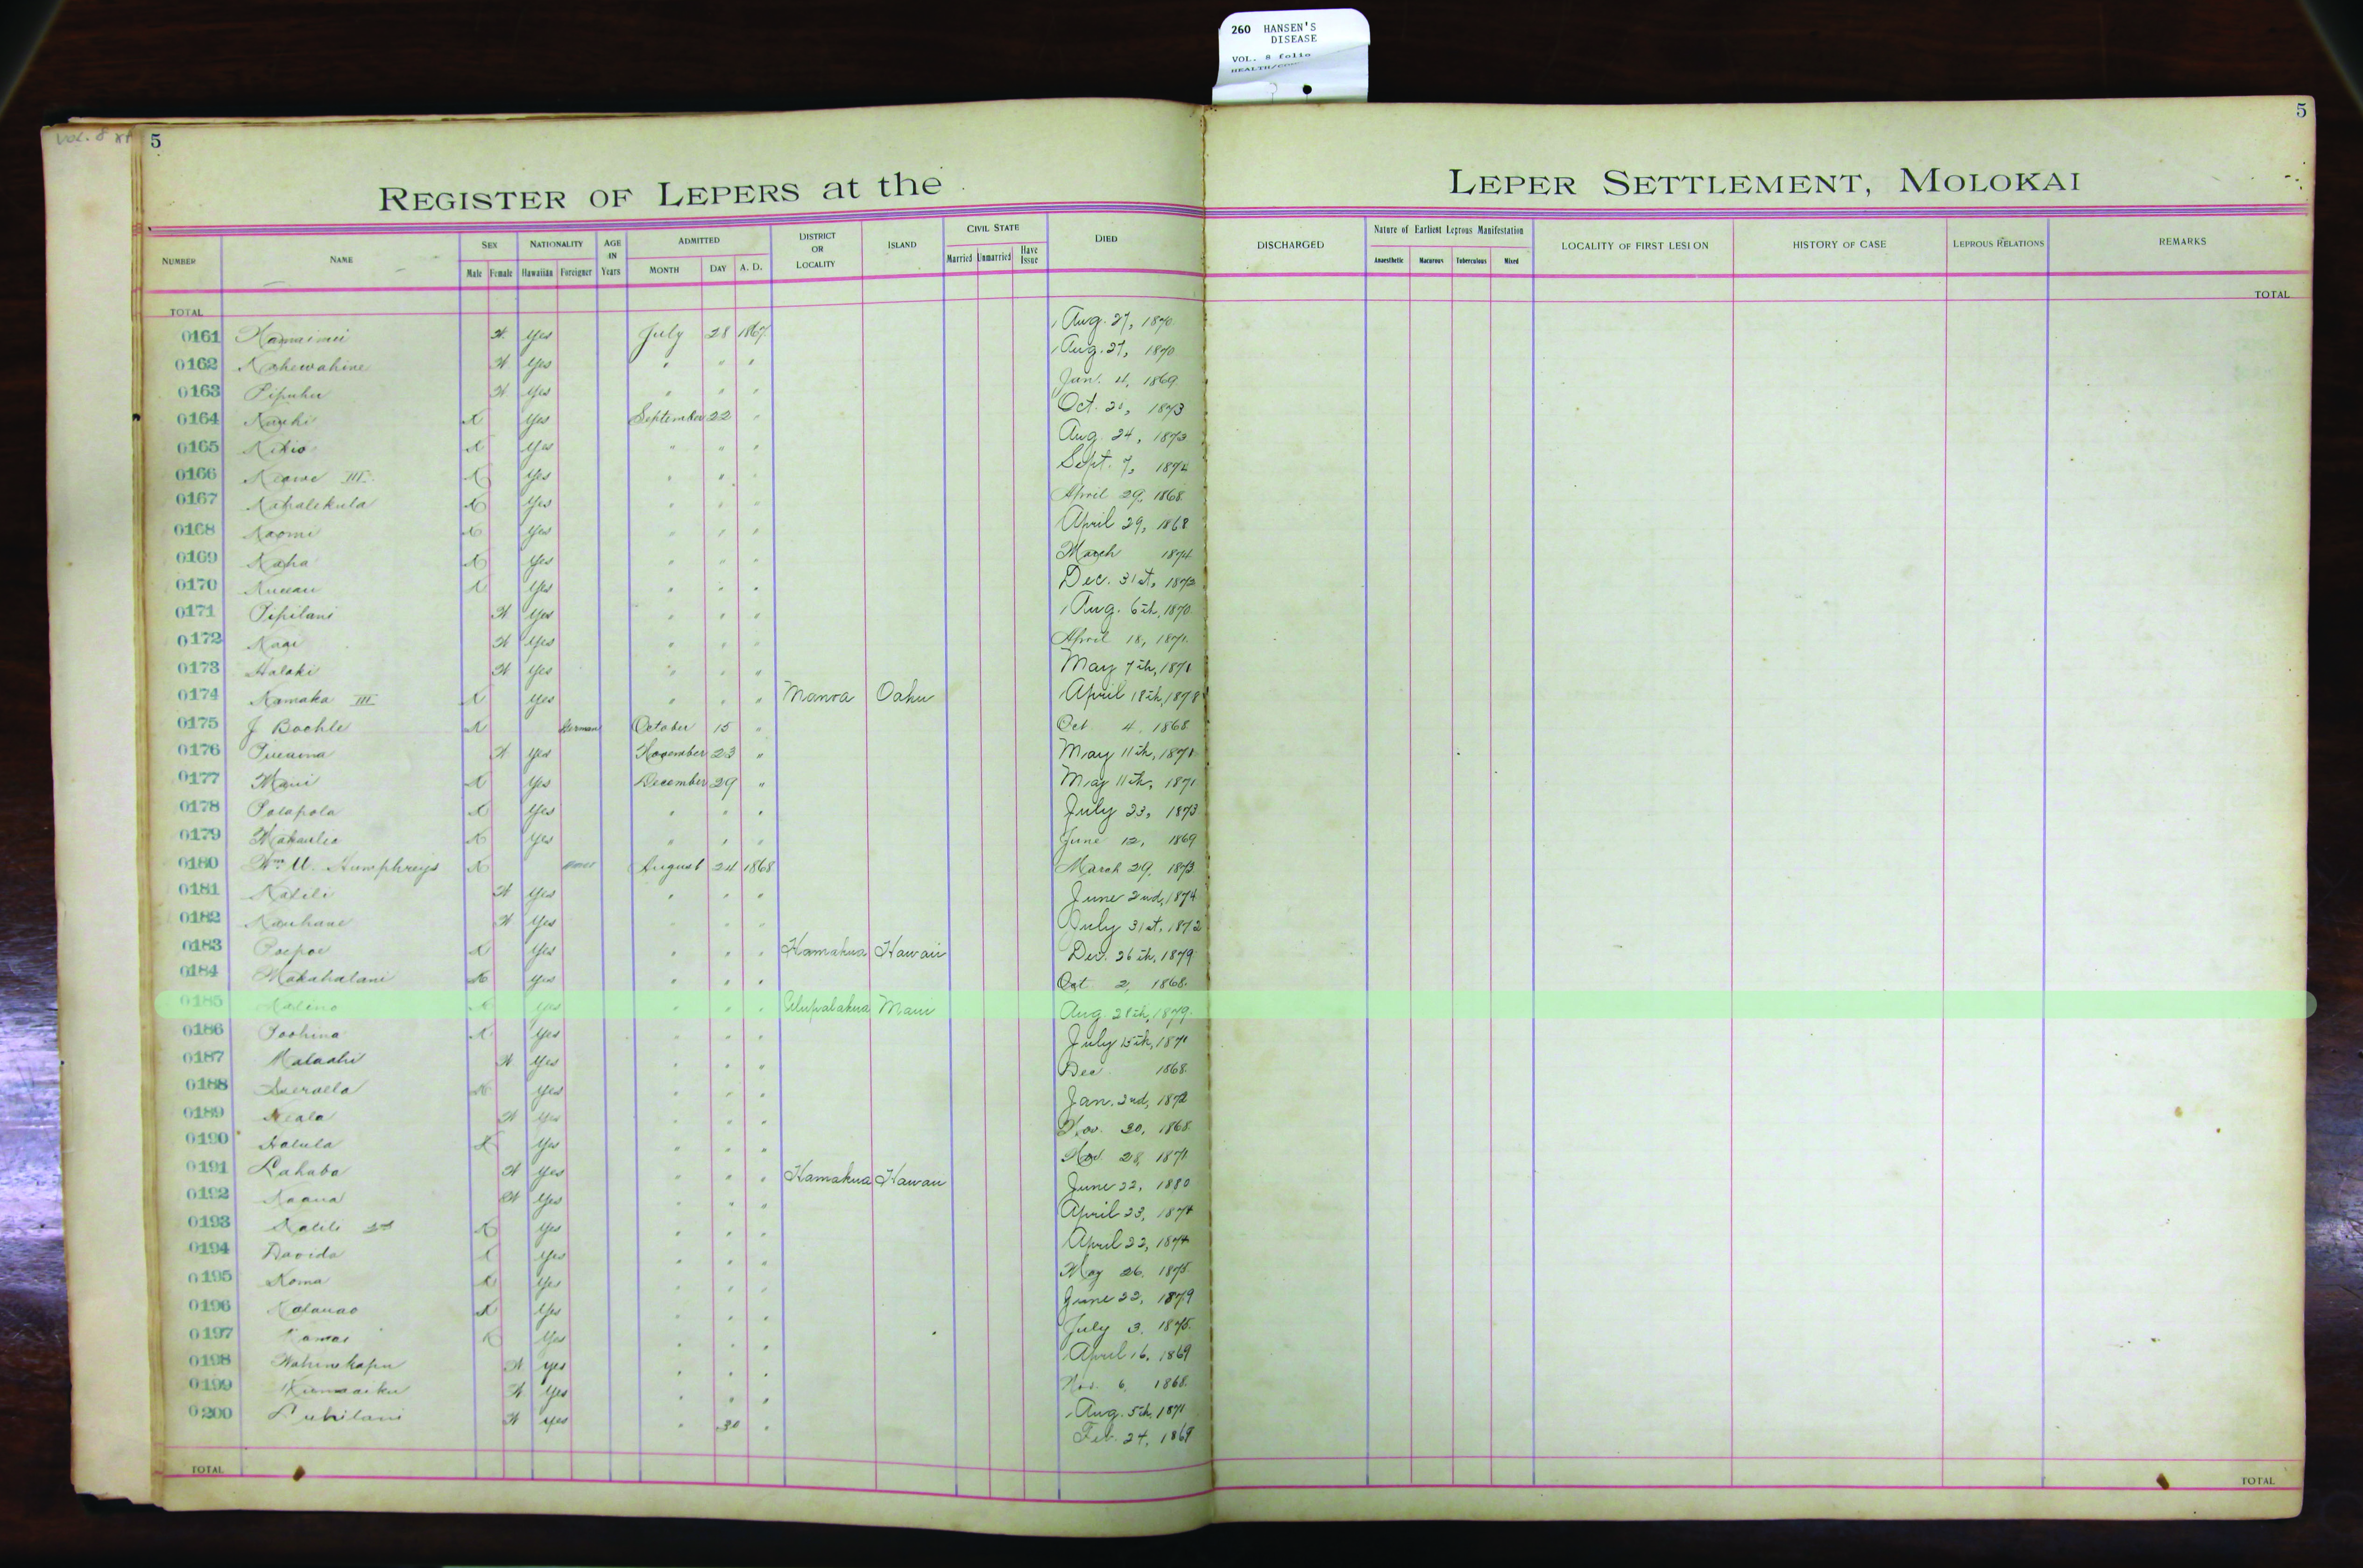 260 HANSEN'S
DISEASE
VOL. 8 folio
VOL. 8
5
5
REGISTER OF LEPERS at the LEPER SETTLEMENT, MOLOKAI
NUMBER NAME SEX Male Female NATIONALITY Hawaiian Foreigner AGE IN Years ADMITTED MONTH DAY A. D. DISTRICT OR LOCALITY ISLAND CIVIL STATE Married Unmarried Have Issue DIED DISCHARGED Nature of Earliest Leprous Manifestation Anaesthetic Macurous Tuberculous Mixed LOCALITY OF FIRST LESION HISTORY OF CASE LEPROUS RELATIONS REMARKS
TOTAL TOTAL
0161 yes July 28 1867 Aug. 27, 1870
0162 Kahewahine yes " " " Aug. 27, 1870
0163 Pipuhu yes " " " Jan. 4, 1869
0164 Kauhi yes September 22 " Oct. 1873
0165 Kikio yes " " " Aug. 24, 1873
0166 Keawe III yes " " " Sept. 7, 1874
0167 Kahalekula yes " " " April 29, 1868
0168 Naomi yes " " " April 29, 1868
0169 Kaha yes " " " March 1874
0170 yes " " " Dec. 31st, 1873
0171 Pipilani yes " " " Aug. 6th, 1870
0172 yes " " " April 18, 1871
0173 Halaki yes " " " May 7th, 1871
0174 Kamaka III yes " " " Manoa Oahu April 18th, 1878
0175 J Boehle German October 15 " Oct 4, 1868
0176 yes November 23 " May 11th, 1871
0177 Maui yes December 29 " May 11th, 1871
0178 Polapola yes " " " July 23, 1873
0179 yes " " " June 12, 1869
0180 Wm. Humphreys August 24 1868 March 29, 1873
0181 Kalili yes " " " June 2nd, 1874
0182 Kauhane yes " " " July 31st, 1872
0183 Poepoe yes " " " Hamakua Hawaii Dec. 26th, 1879
0184 Makahalani yes " " " Oct 2, 1868
0185 yes " " " Ulupalakua Maui Aug 28th, 1879
0186 Poohina yes " " " July 15th, 1871
0187 Malaahi yes " " " Dec 1868
0188 yes " " " Jan. 2nd, 1872
0189 yes " " " Nov. 30, 1868
0190 Halula yes " " " Nov. 28, 1871
0191 Lahaba yes " " " Hamakua Hawaii June 22, 1880
0192 Kaaua yes " " " April 23, 1874
0193 Kalili 2nd yes " " " April 22, 1874
0194 Davida yes " " " May 26, 1875
0195 Koma yes " " " June 22, 1879
0196 yes " " " July 3, 1875
0197 Kamai yes " " " April 16, 1869
0198 Wahinekapu yes " " " Nov. 6, 1868
0199 yes " " " Aug. 5th, 1871
0200 yes " 30 " Feb. 24, 1869
TOTAL TOTAL